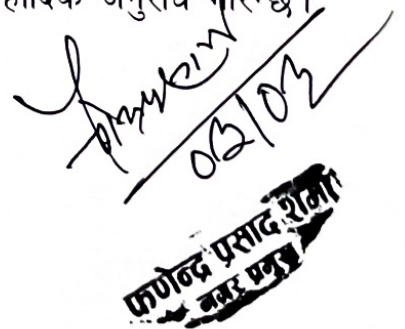 हार्दिक अनुरोध गरिन्छ।
०२/०३
फणेन्द्र प्रसाद शर्मा
नगर प्रमुख